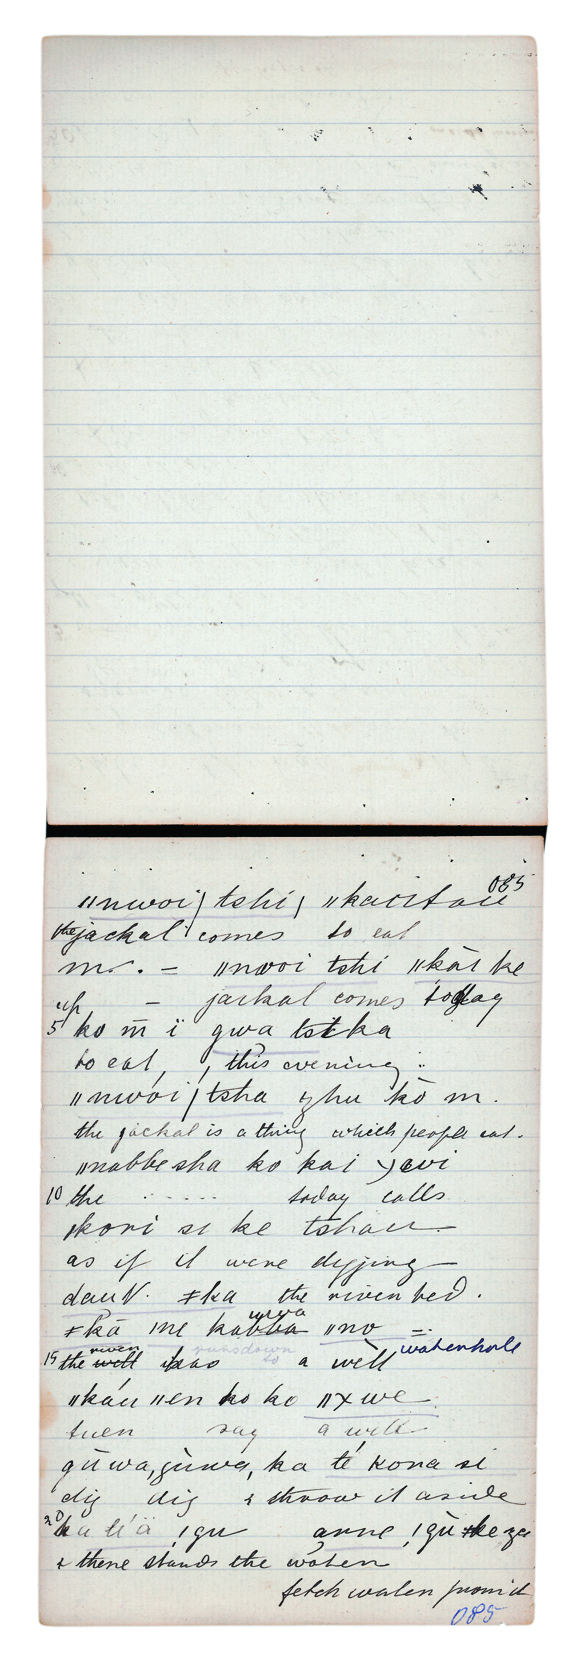 085
ǁnwoi) tshi, ǁkacitau
the jackal comes to eat
m. – ǁnwoi tshi ǁkāi ke
up – jackal comes today
5 ko m̄ ï gwa tsika
to eat, , this evening :
ǁnwoi / tsha zhu kō m.
the jackal is a thing which people eat.
ǁnabbesha ko kai
10 the ...... today calls
kori si ke tshau
as if it were digging
dauV. ǂka the river bed.
ǂkā me kabba ǁno =
15 the river runs down to a well waterhole
ǁkáu ǁen ko ko ǁxwe
tuen say a well
gūwa, gùwa, ka té kona si
dig dig & throw it aside
20 ka tí'ä !gu anne !gū
& there stands the water
fetch water from it
085